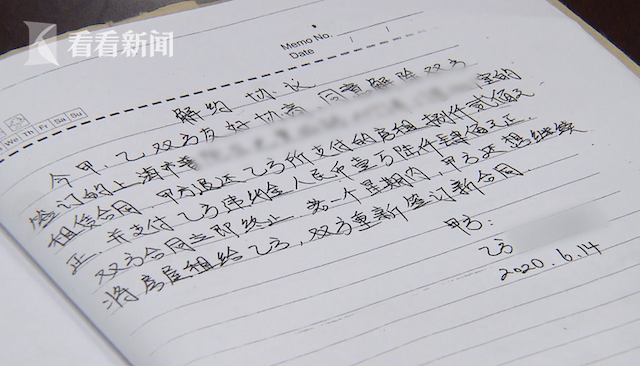 看看新闻
Memo No.
Date / /
We Th Fr Sa Su
解约协议
今甲、乙双方友好协商 同意解除双方
签订的上海市莘 室的
租赁合同 甲方退还乙方所支付的房租 捌仟贰佰元
正. 并支付乙方违约金人民币壹万陆仟肆佰元正.
双方合同立即终止 若一个星期内, 甲方还想继续
将房屋租给乙方, 双方重新签订新合同.
甲方:
乙方
2020.6.14